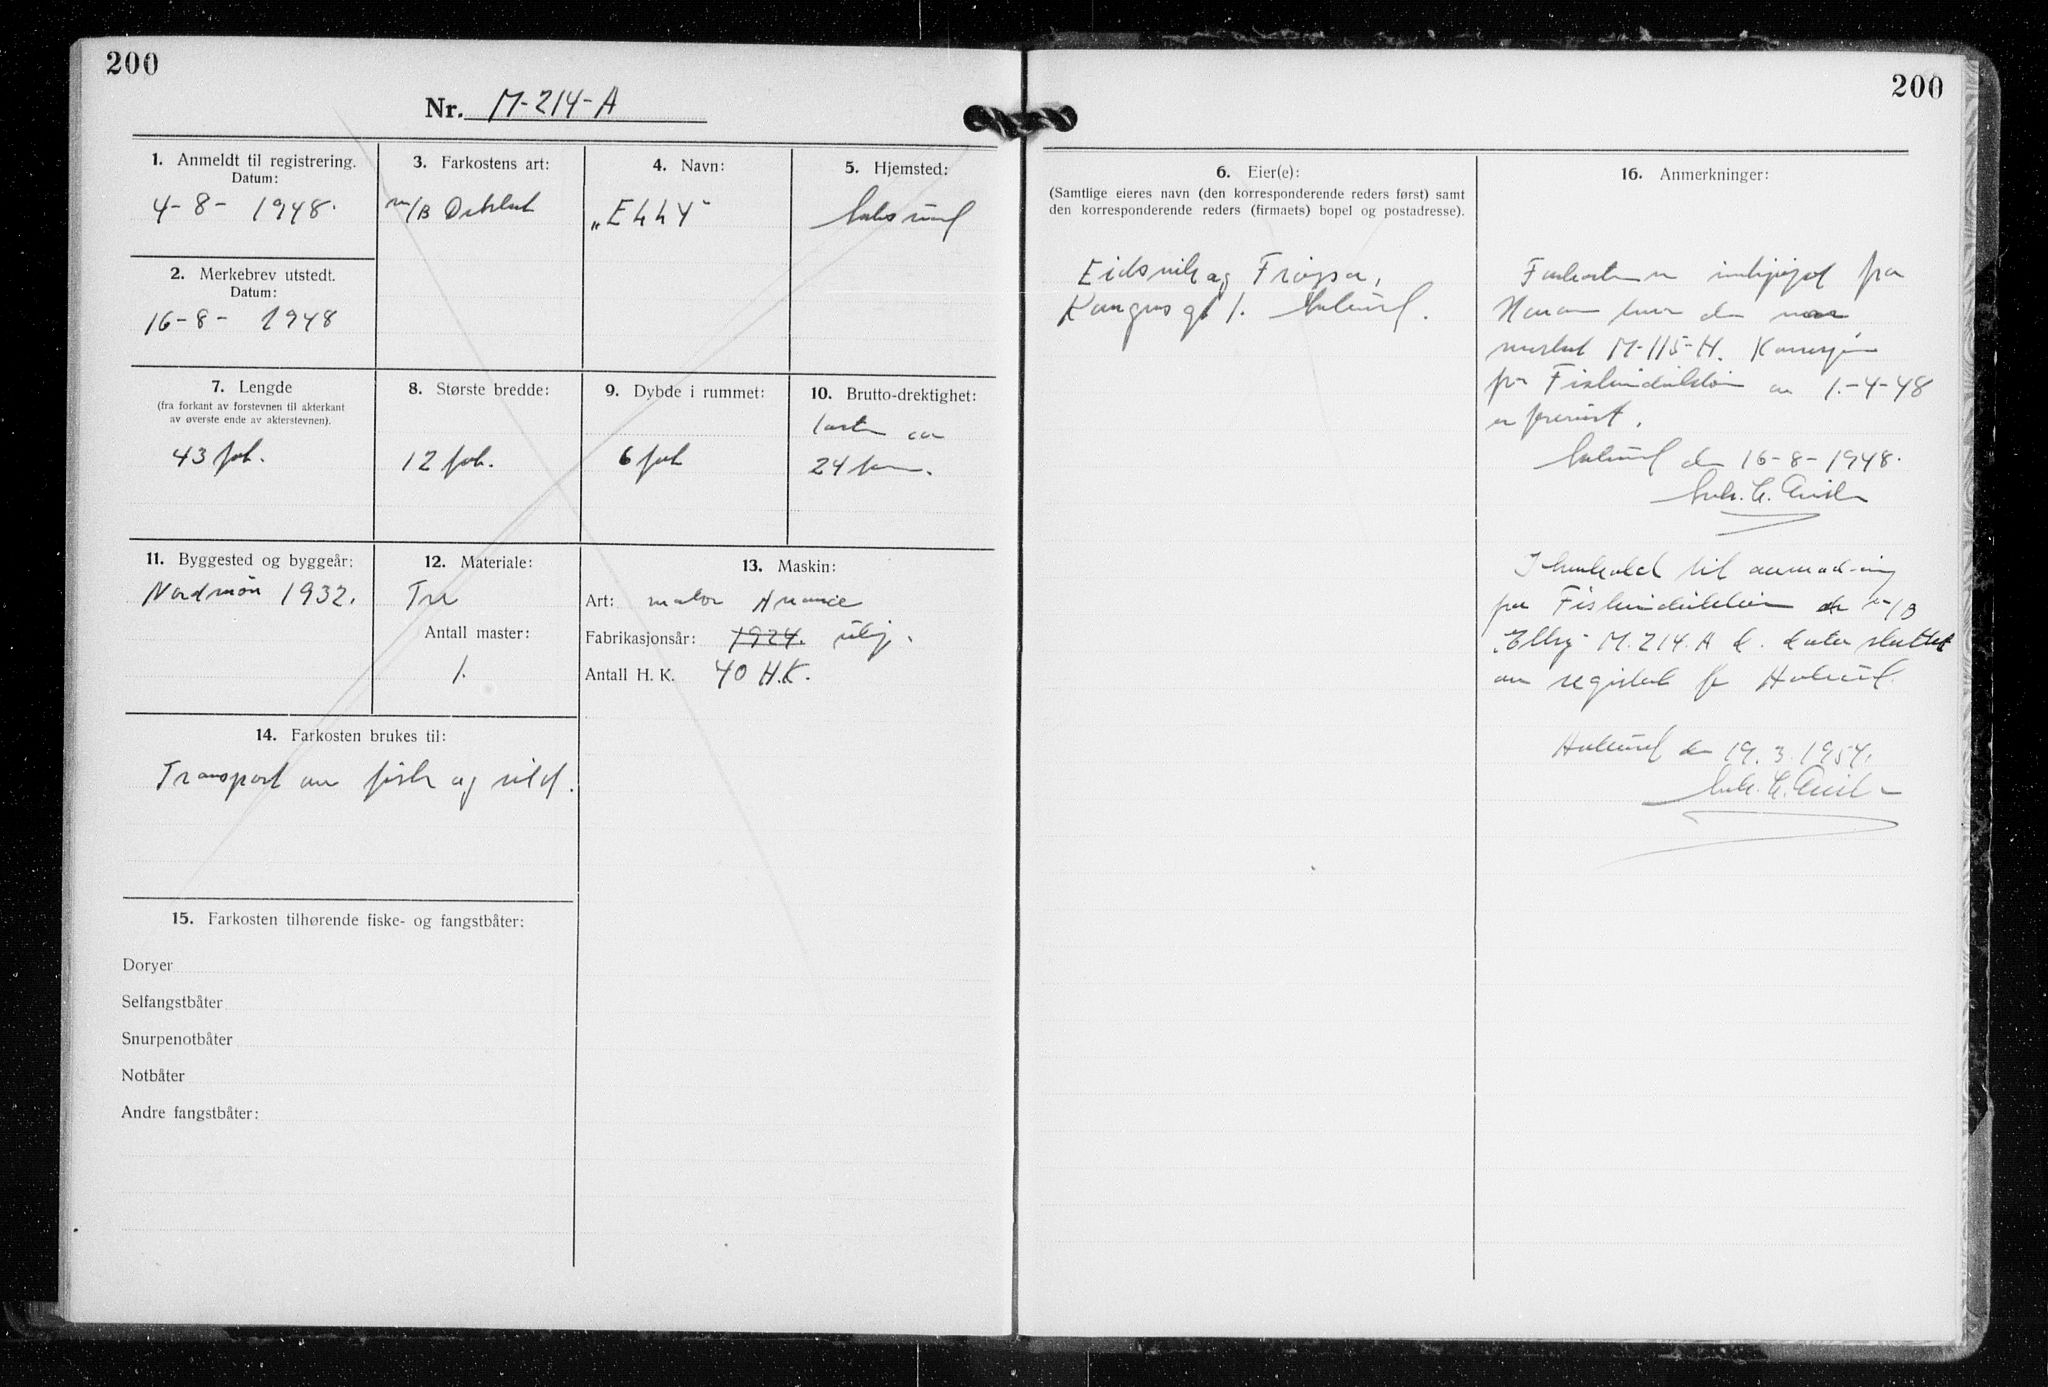 200
Nr. M-214-A
1. Anmeldt til registrering.
Datum:
4-8- 1948.
3. Farkostens art:
m/B Dekket
4. Navn:
„ELLY"
5. Hjemsted:
Aalesund
2. Merkebrev utstedt.
Datum:
16-8- 1948
7. Lengde
(fra forkant av forstevnen til akterkant
av øverste ende av akterstevnen).
43 fot.
8. Største bredde:
12 fot.
9. Dybde i rummet:
6 fot
10. Brutto-drektighet:
ca
24
11. Byggested og byggeår:
Nordmøre 1932.
12. Materiale:
Tre
Antall master:
1.
13. Maskin:
Art: motor
Fabrikasjonsår: 1924.
Antall H. K. 40 H.K.
14. Farkosten brukes til:
Transport av fisk og sild.
15. Farkosten tilhørende fiske- og fangstbåter:
Doryer
Selfangstbåter
Snurpenotbåter
Notbåter
Andre fangstbåter:
200
6. Eier(e):
(Samtlige eieres navn (den korresponderende reders først) samt
den korresponderende reders (firmaets) bopel og postadresse).
Eidsvik og
Kongensgt 1. Aalesund.
16. Anmerkninger:
Farkosten er innkjøpt fra
Haram hvor den var
merket M-115-H. Konsesjon
fra Fiskeridirektøren av 1.-4-48
er forevist.
Aalesund den 16-8-1948.
I henhold til anmodning
fra Fiskeridirektøren er m/B
„Elly" M.214.A d. dato slettet
av registret for Aalesund.
Aalesund den 19.3.1954.